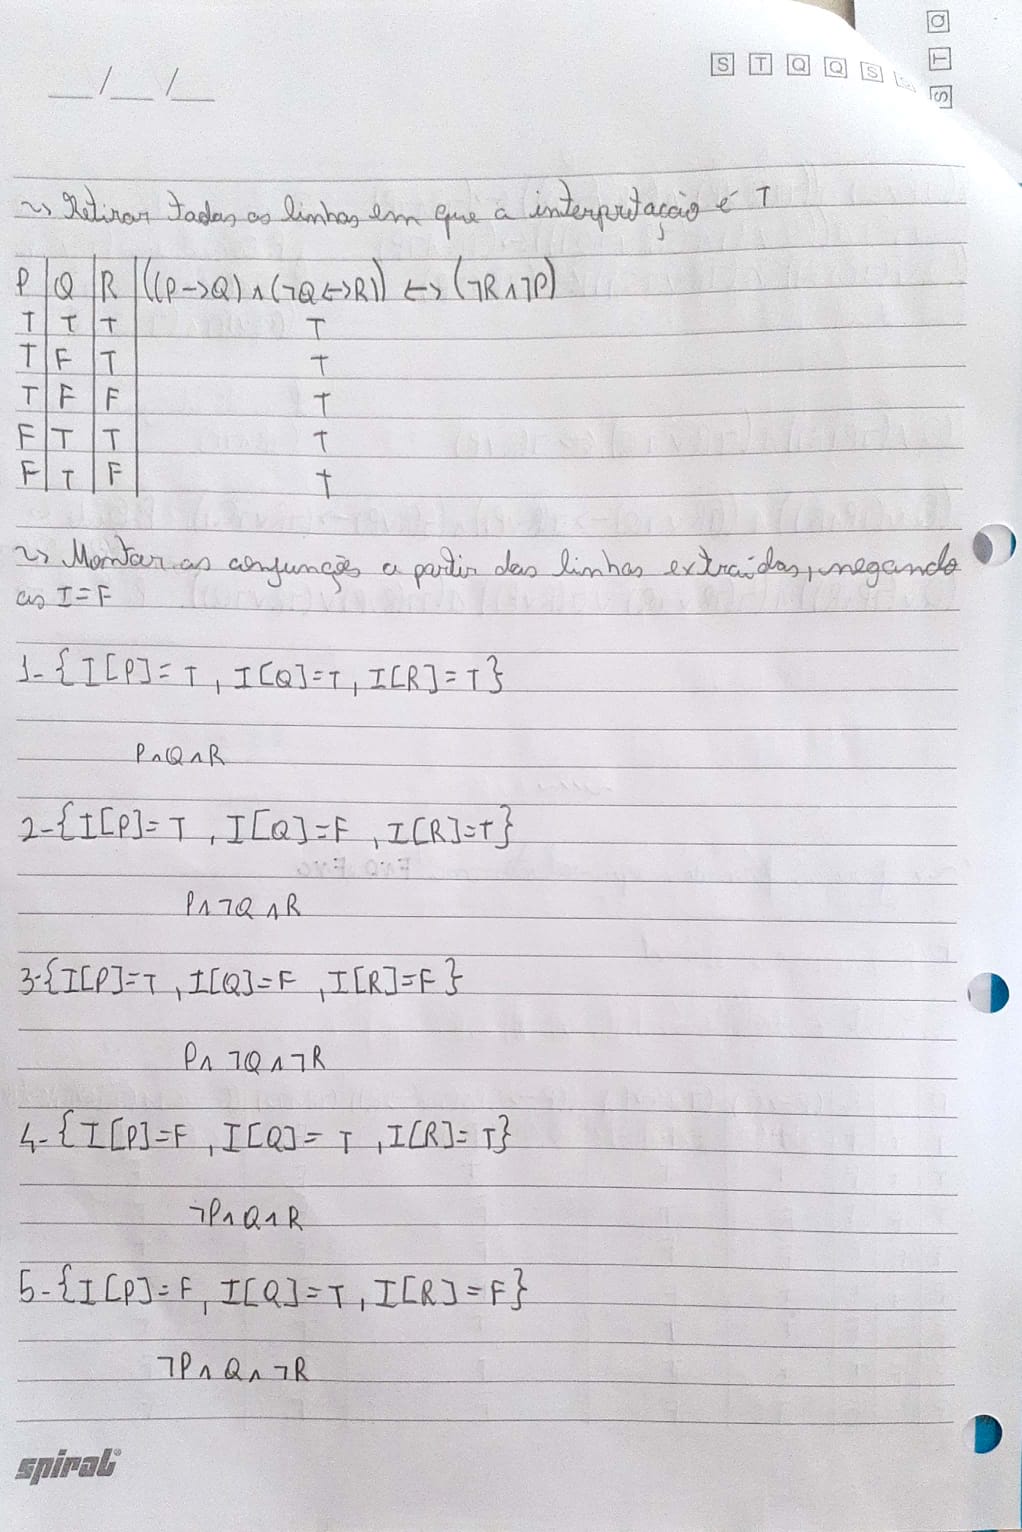 __/__/__
S T Q Q S
S T D
~> Retirar todas as linhas em que a interpretação é T
P | Q | R | ((P->Q)∧(¬Q<->R)) <-> (¬R∧¬P)
T | T | T | T
T | F | T | T
T | F | F | T
F | T | T | T
F | T | F | T
~> Montar as conjunções a partir das linhas extraídas, negando
as I=F
1-{I[P]=T, I[Q]=T, I[R]=T}
P∧Q∧R
2-{I[P]=T, I[Q]=F, I[R]=T}
P∧¬Q∧R
3-{I[P]=T, I[Q]=F, I[R]=F}
P∧¬Q∧¬R
4-{I[P]=F, I[Q]=T, I[R]=T}
¬P∧Q∧R
5-{I[P]=F, I[Q]=T, I[R]=F}
¬P∧Q∧¬R
spiral®